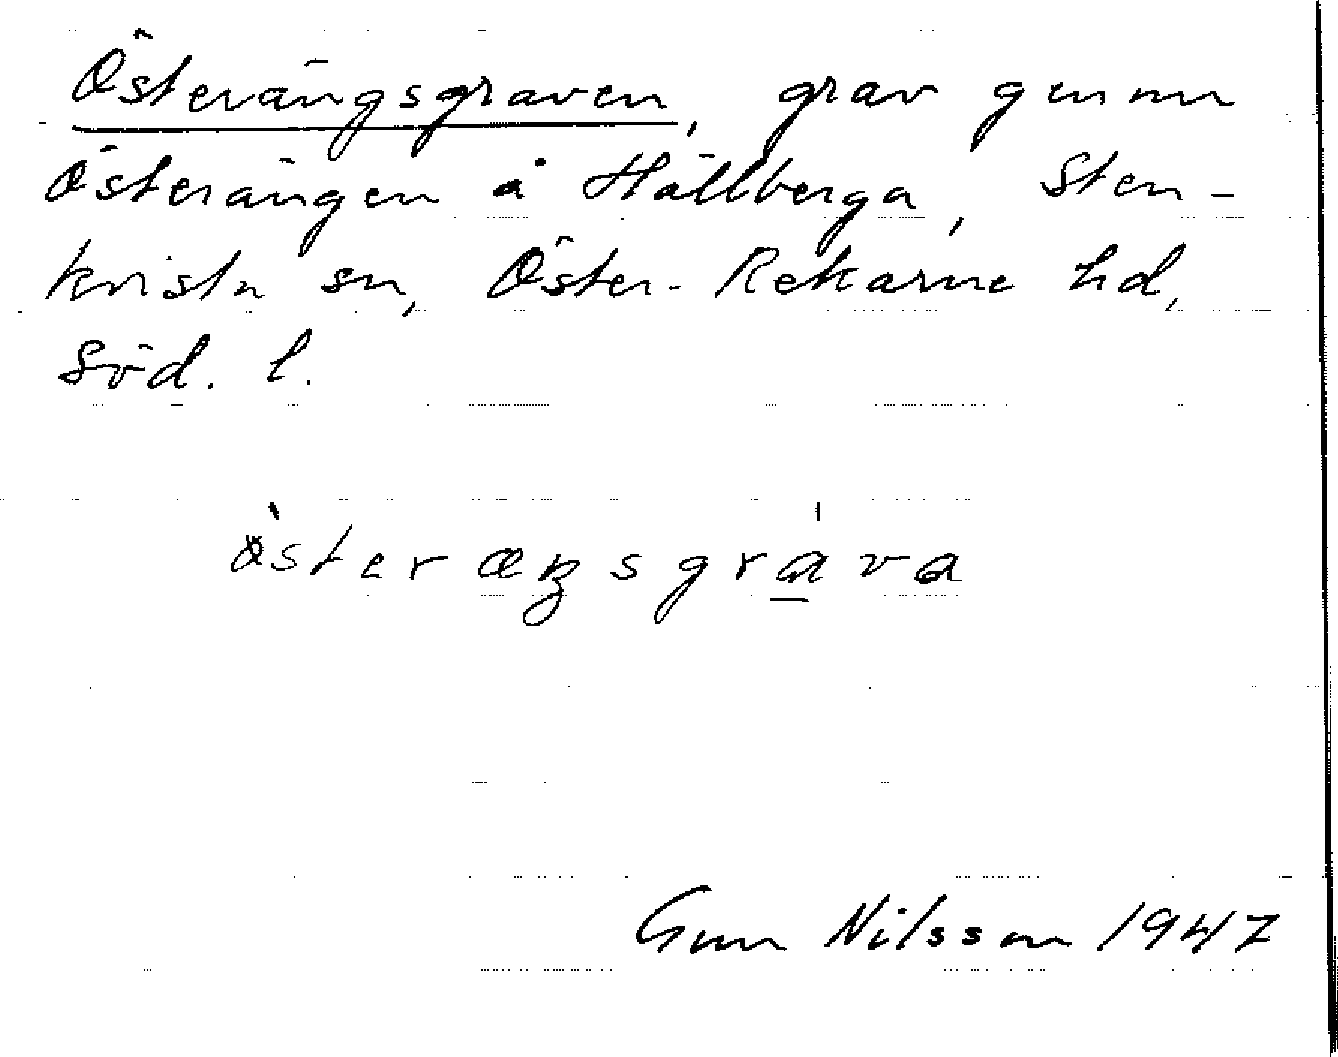 Österängsgraven, grav genom
Österängen å Hällberga, Sten-
kvista sn, Öster-Rekarne hd,
Söd. l.
østeræŋsgrava
Gun Nilsson 1947